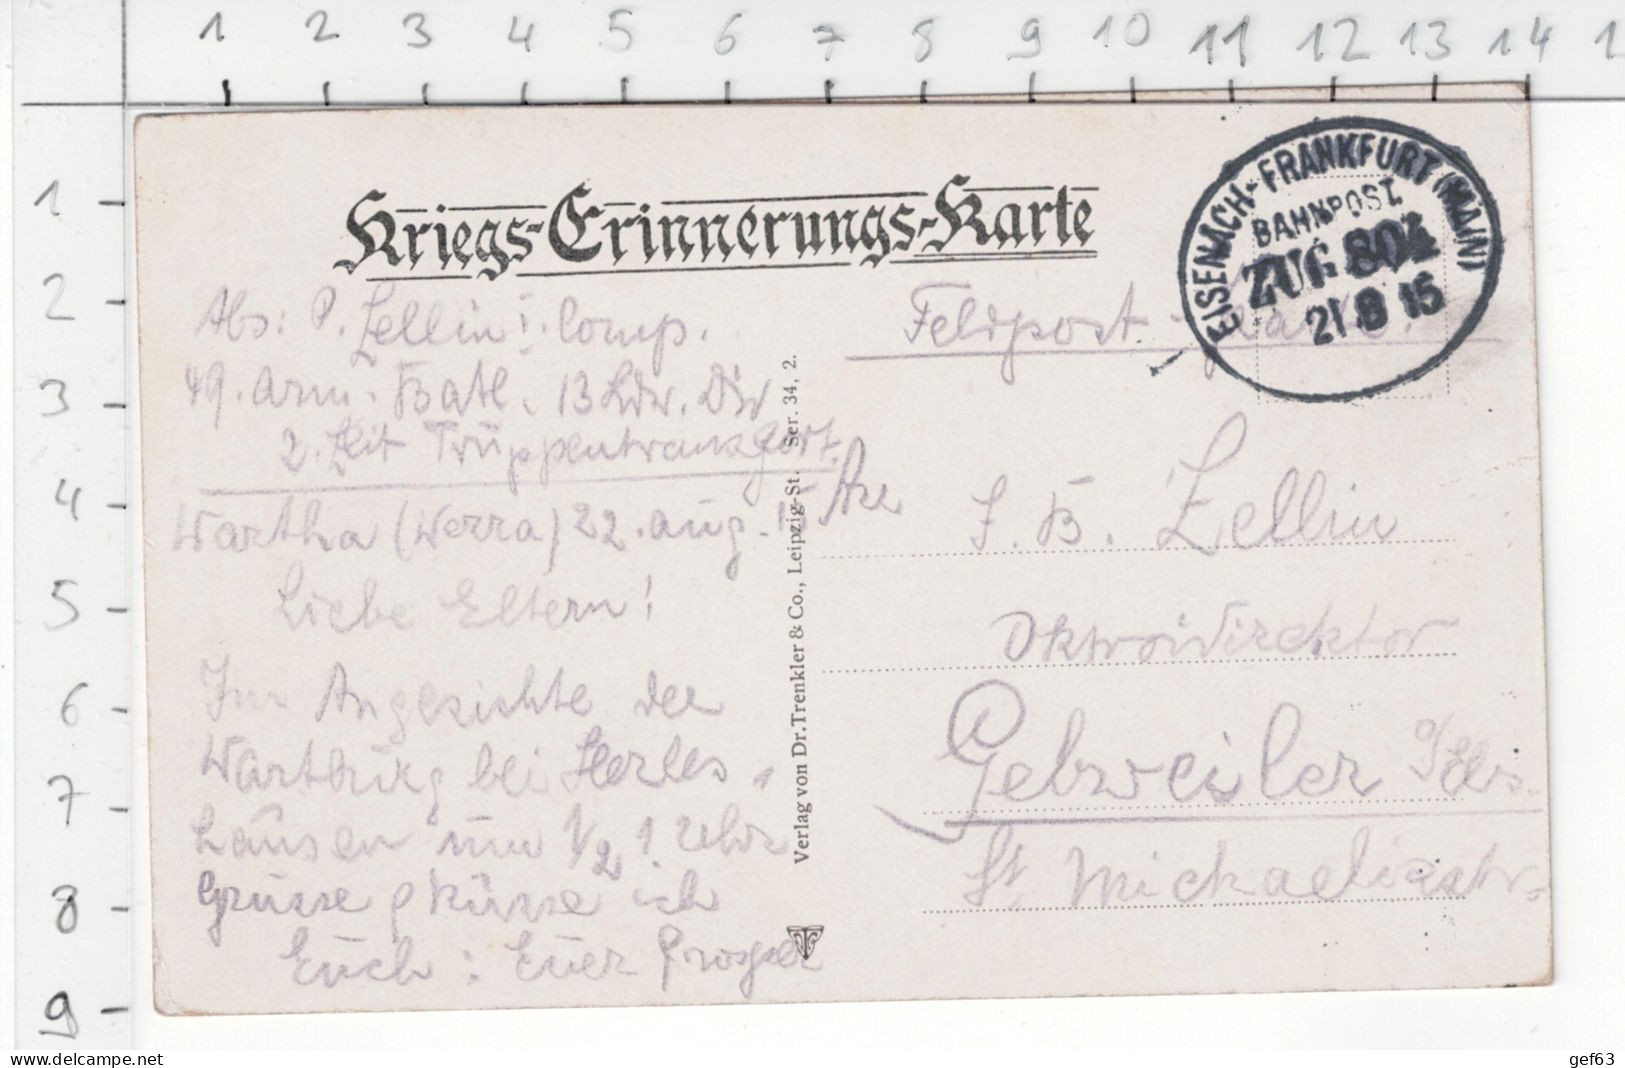 1 2 3 4 5 6 7 8 9 10 11 12 13 14 1
1
2
3
4
5
6
7
8
9
Kriegs-Erinnerungs-Karte
EISENACH-FRANKFURT (MAIN)
BAHNPOST
ZUG 804
21 8 15
Abs: P. Zellin I. Comp.
49. Arm. Batl. 13 Ldw. Div
2. Zeit Truppentransport.
Wartha (Werra) 22. Aug. 15
Liebe Eltern!
Im Angesichte der
Wartburg bei Herles-
hausen um 1/2 1 Uhr
Grüsse & küsse ich
Euch: Euer Prosper
Verlag von Dr. Trenkler & Co., Leipzig-St. Ser. 34, 2.
Feldpost-
J. B. Zellin
Oktroidirektor
Gebweiler o/Els.
St. Michaelisstr.
delcampe.net
gef63